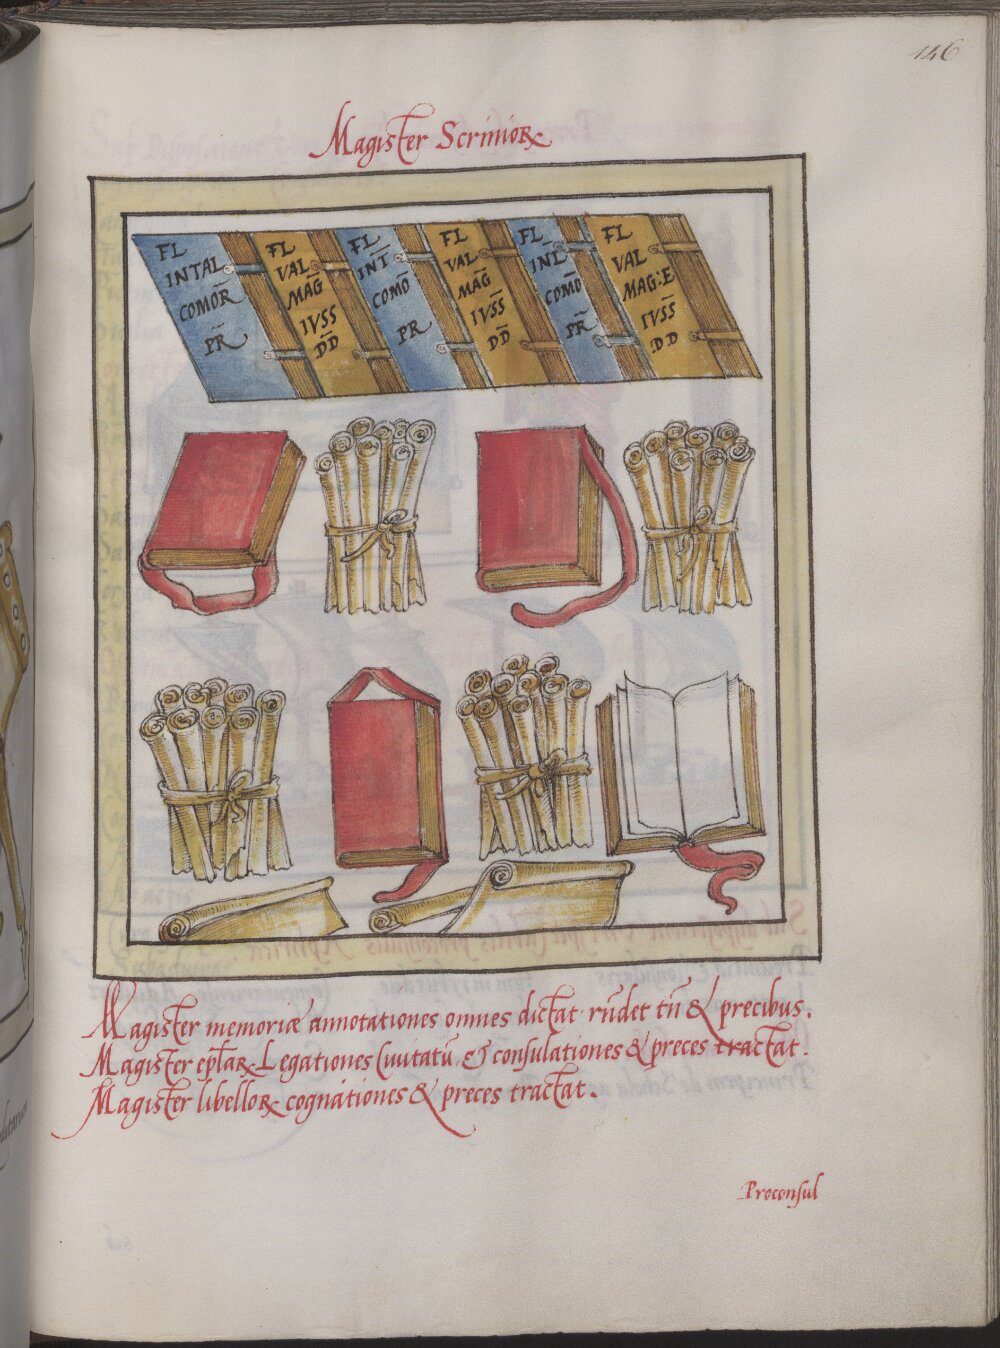 146
Magister Scrinioꝝ
FL
INTAL
COMOR̄
PR̄
FL
VAL
MAḠ
IVSS
D̄D
FL
INT̄
COMŌ
PR
FL
VAL
MAḠ
IVSS̄
DD̄
FL
INL̄
COMŌ
PR̄
FL
VAL
MAG:E
IVSS̄
D.D
Magister memoriæ annotationes omnes dictat rūdet tn̄ & precibus.
Magister ep̄laꝝ Legationes Ciuitatū & consulationes & preces tractat.
Magister libelloꝝ cognitiones & preces tractat.
Proconsul